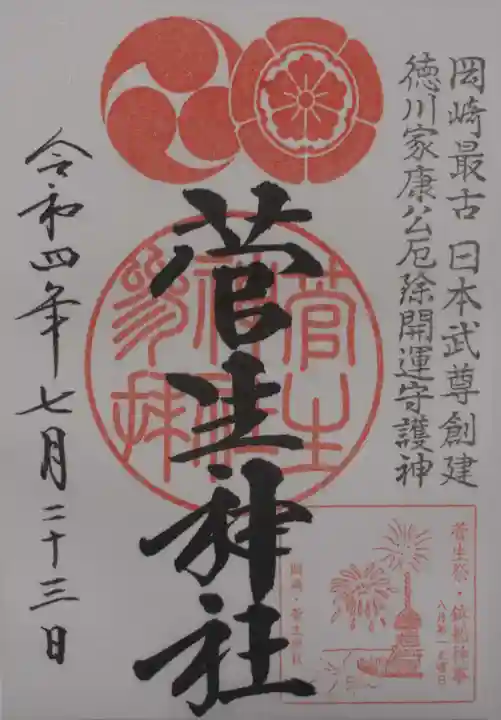 岡崎最古 日本武尊創建
徳川家康公厄除開運守護神
菅生神社
菅生神社参拝
令和四年七月二十三日
菅生祭・鉾船神事
八月第一土曜日
岡崎・菅生神社